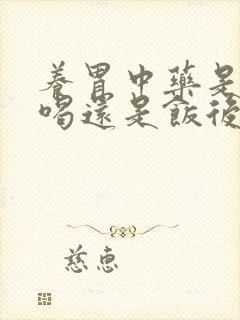 養胃中藥是
喝還是飯後
慈惠